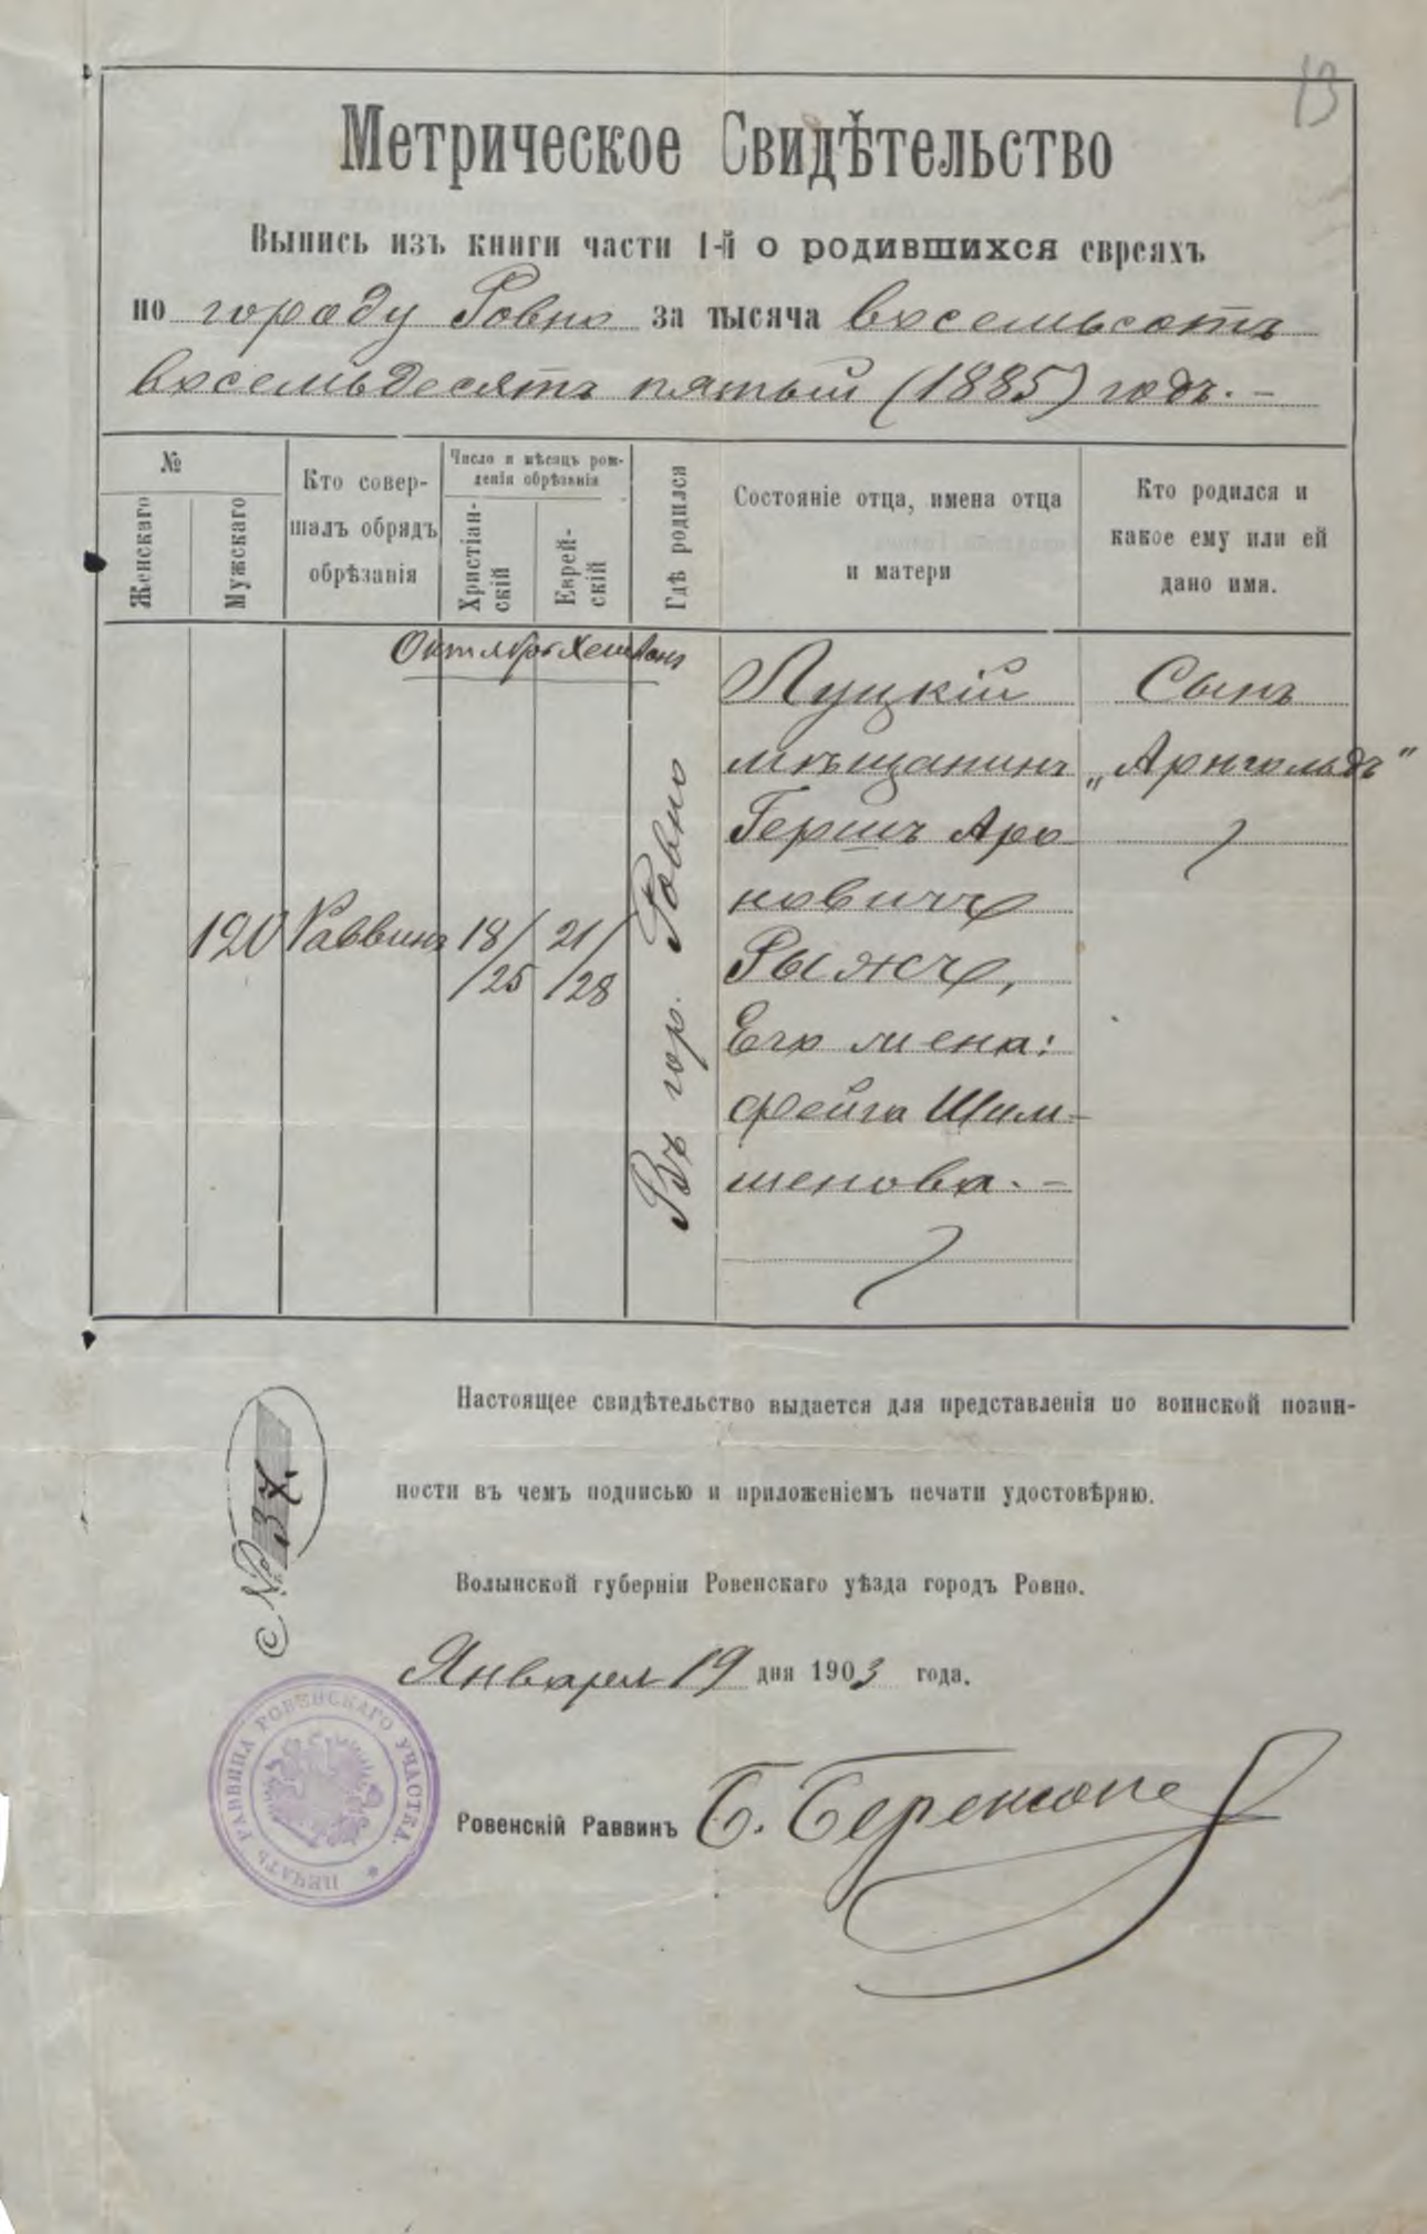 13
Метрическое Свидѣтельство
Выпись изъ книги части 1-й о родившихся евреяхъ
по городу Ровно за тысяча восемьсотъ
восемьдесятъ пятый (1885) годъ. –
№
Женскаго
Мужскаго
Кто совер-
шалъ обрядъ
обрѣзанія
Число и мѣсяцъ рож-
денія обрѣзанія
Христіан-
скій
Еврей-
скій
Гдѣ родился
Состояніе отца, имена отца
и матери
Кто родился и
какое ему или ей
дано имя.
Октябрь Хешванъ
120
Раввинъ
18/
/25
21/
/28
Въ гор. Ровно
Луцкій
мѣщанинъ
Гершъ Аро
новичъ
Рыжъ,
Его жена:
Фейга Шим-
шенова. –
Сынъ
„Арнгольдъ"
Настоящее свидѣтельство выдается для представленія по воинской повин-
ности въ чемъ подписью и приложеніемъ печати удостовѣряю.
Волынской губерніи Ровенскаго уѣзда городъ Ровно.
Января 19 дня 1903 года.
№ 37.
ПЕЧАТЬ РАВВИНА РОВЕНСКАГО УЧАСТКА. *
Ровенскій Раввинъ Б. Беренсонъ